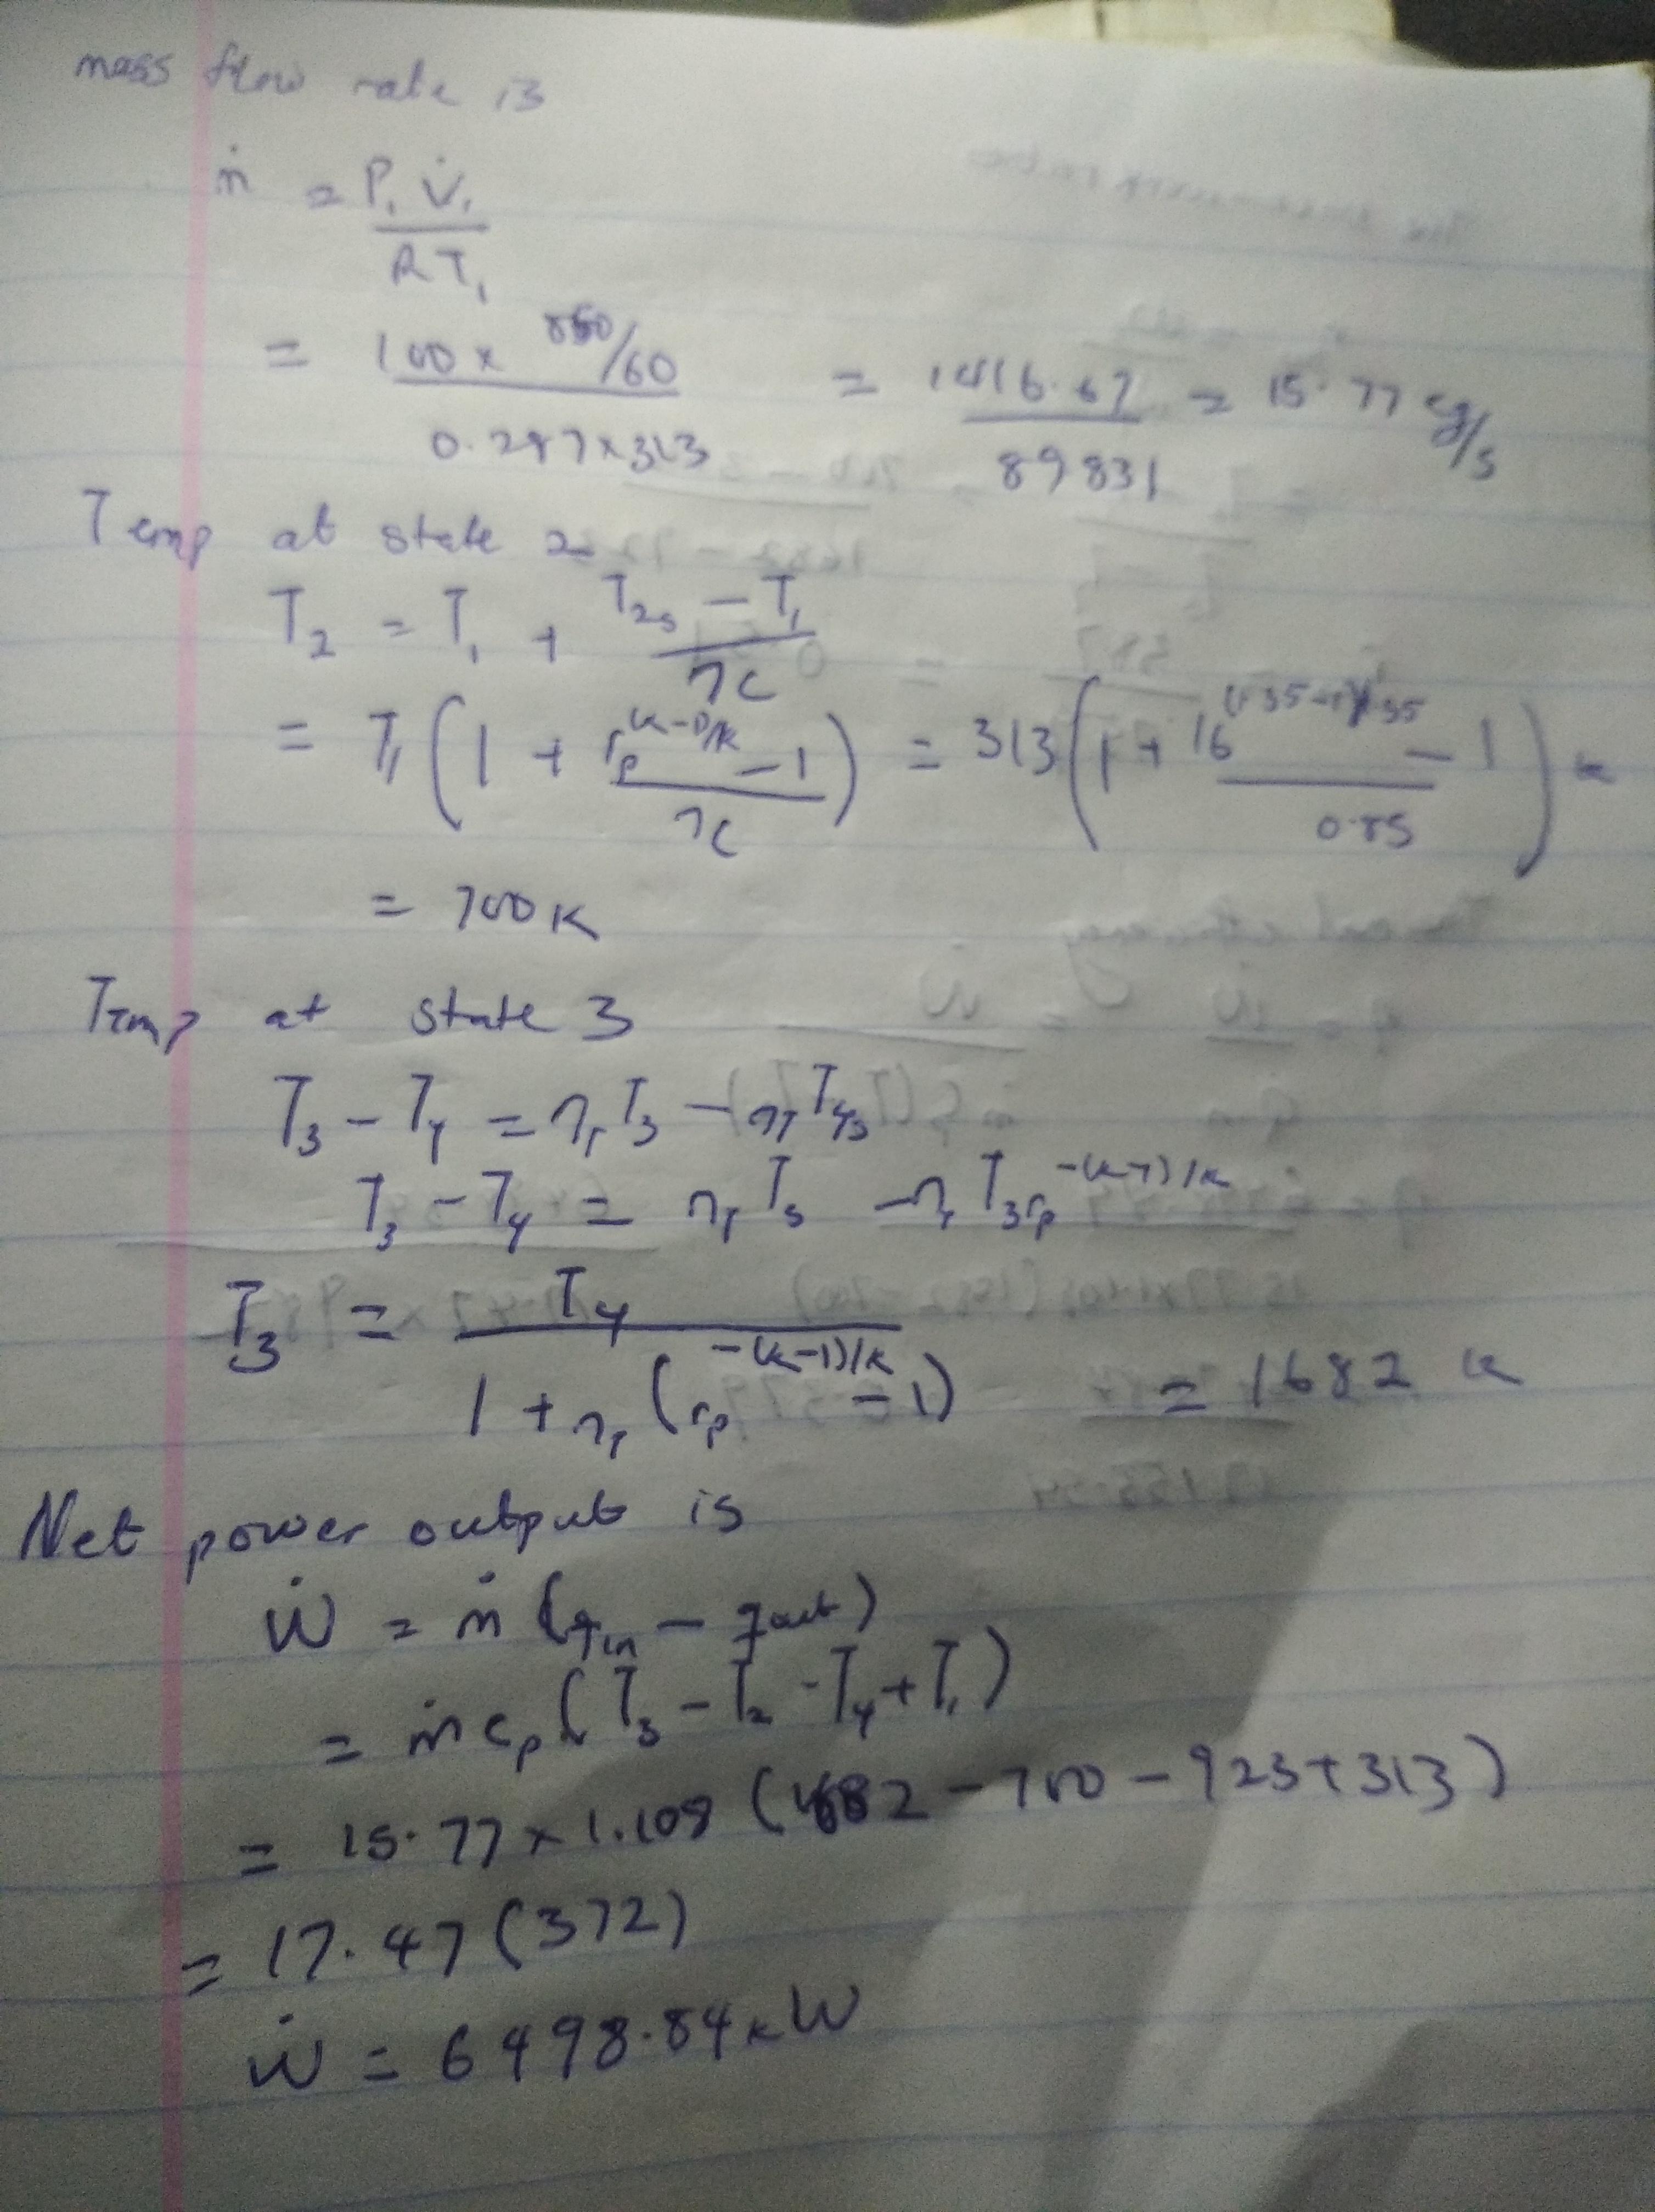 mass flow rate is
ṁ = P₁ V̇₁ / RT₁
= 100 × 850/60 / 0.287×313 = 1416.67 / 89831 = 15.77 kg/s
Temp at state 2
T₂ = T₁ + T₂s − T₁ / ηc
= T₁ (1 + rp^(k-1)/k − 1 / ηc) = 313 (1 + 16^(1.35-1)/1.35 − 1 / 0.85) K
= 700K
Temp at state 3
T₃ − T₄ = ηT T₃ − ηT T₄s
T₃ − T₄ = ηT T₃ − ηT T₃ rp^-(k-1)/k
T₃ = T₄ / 1 + ηT (rp^-(k-1)/k − 1) = 1682 K
Net power output is
Ẇ = ṁ (qin − qout)
= ṁ cp (T₃ − T₂ − T₄ + T₁)
= 15.77 × 1.108 (1682 − 700 − 923 + 313)
= 17.47 (372)
Ẇ = 6498.84 kW